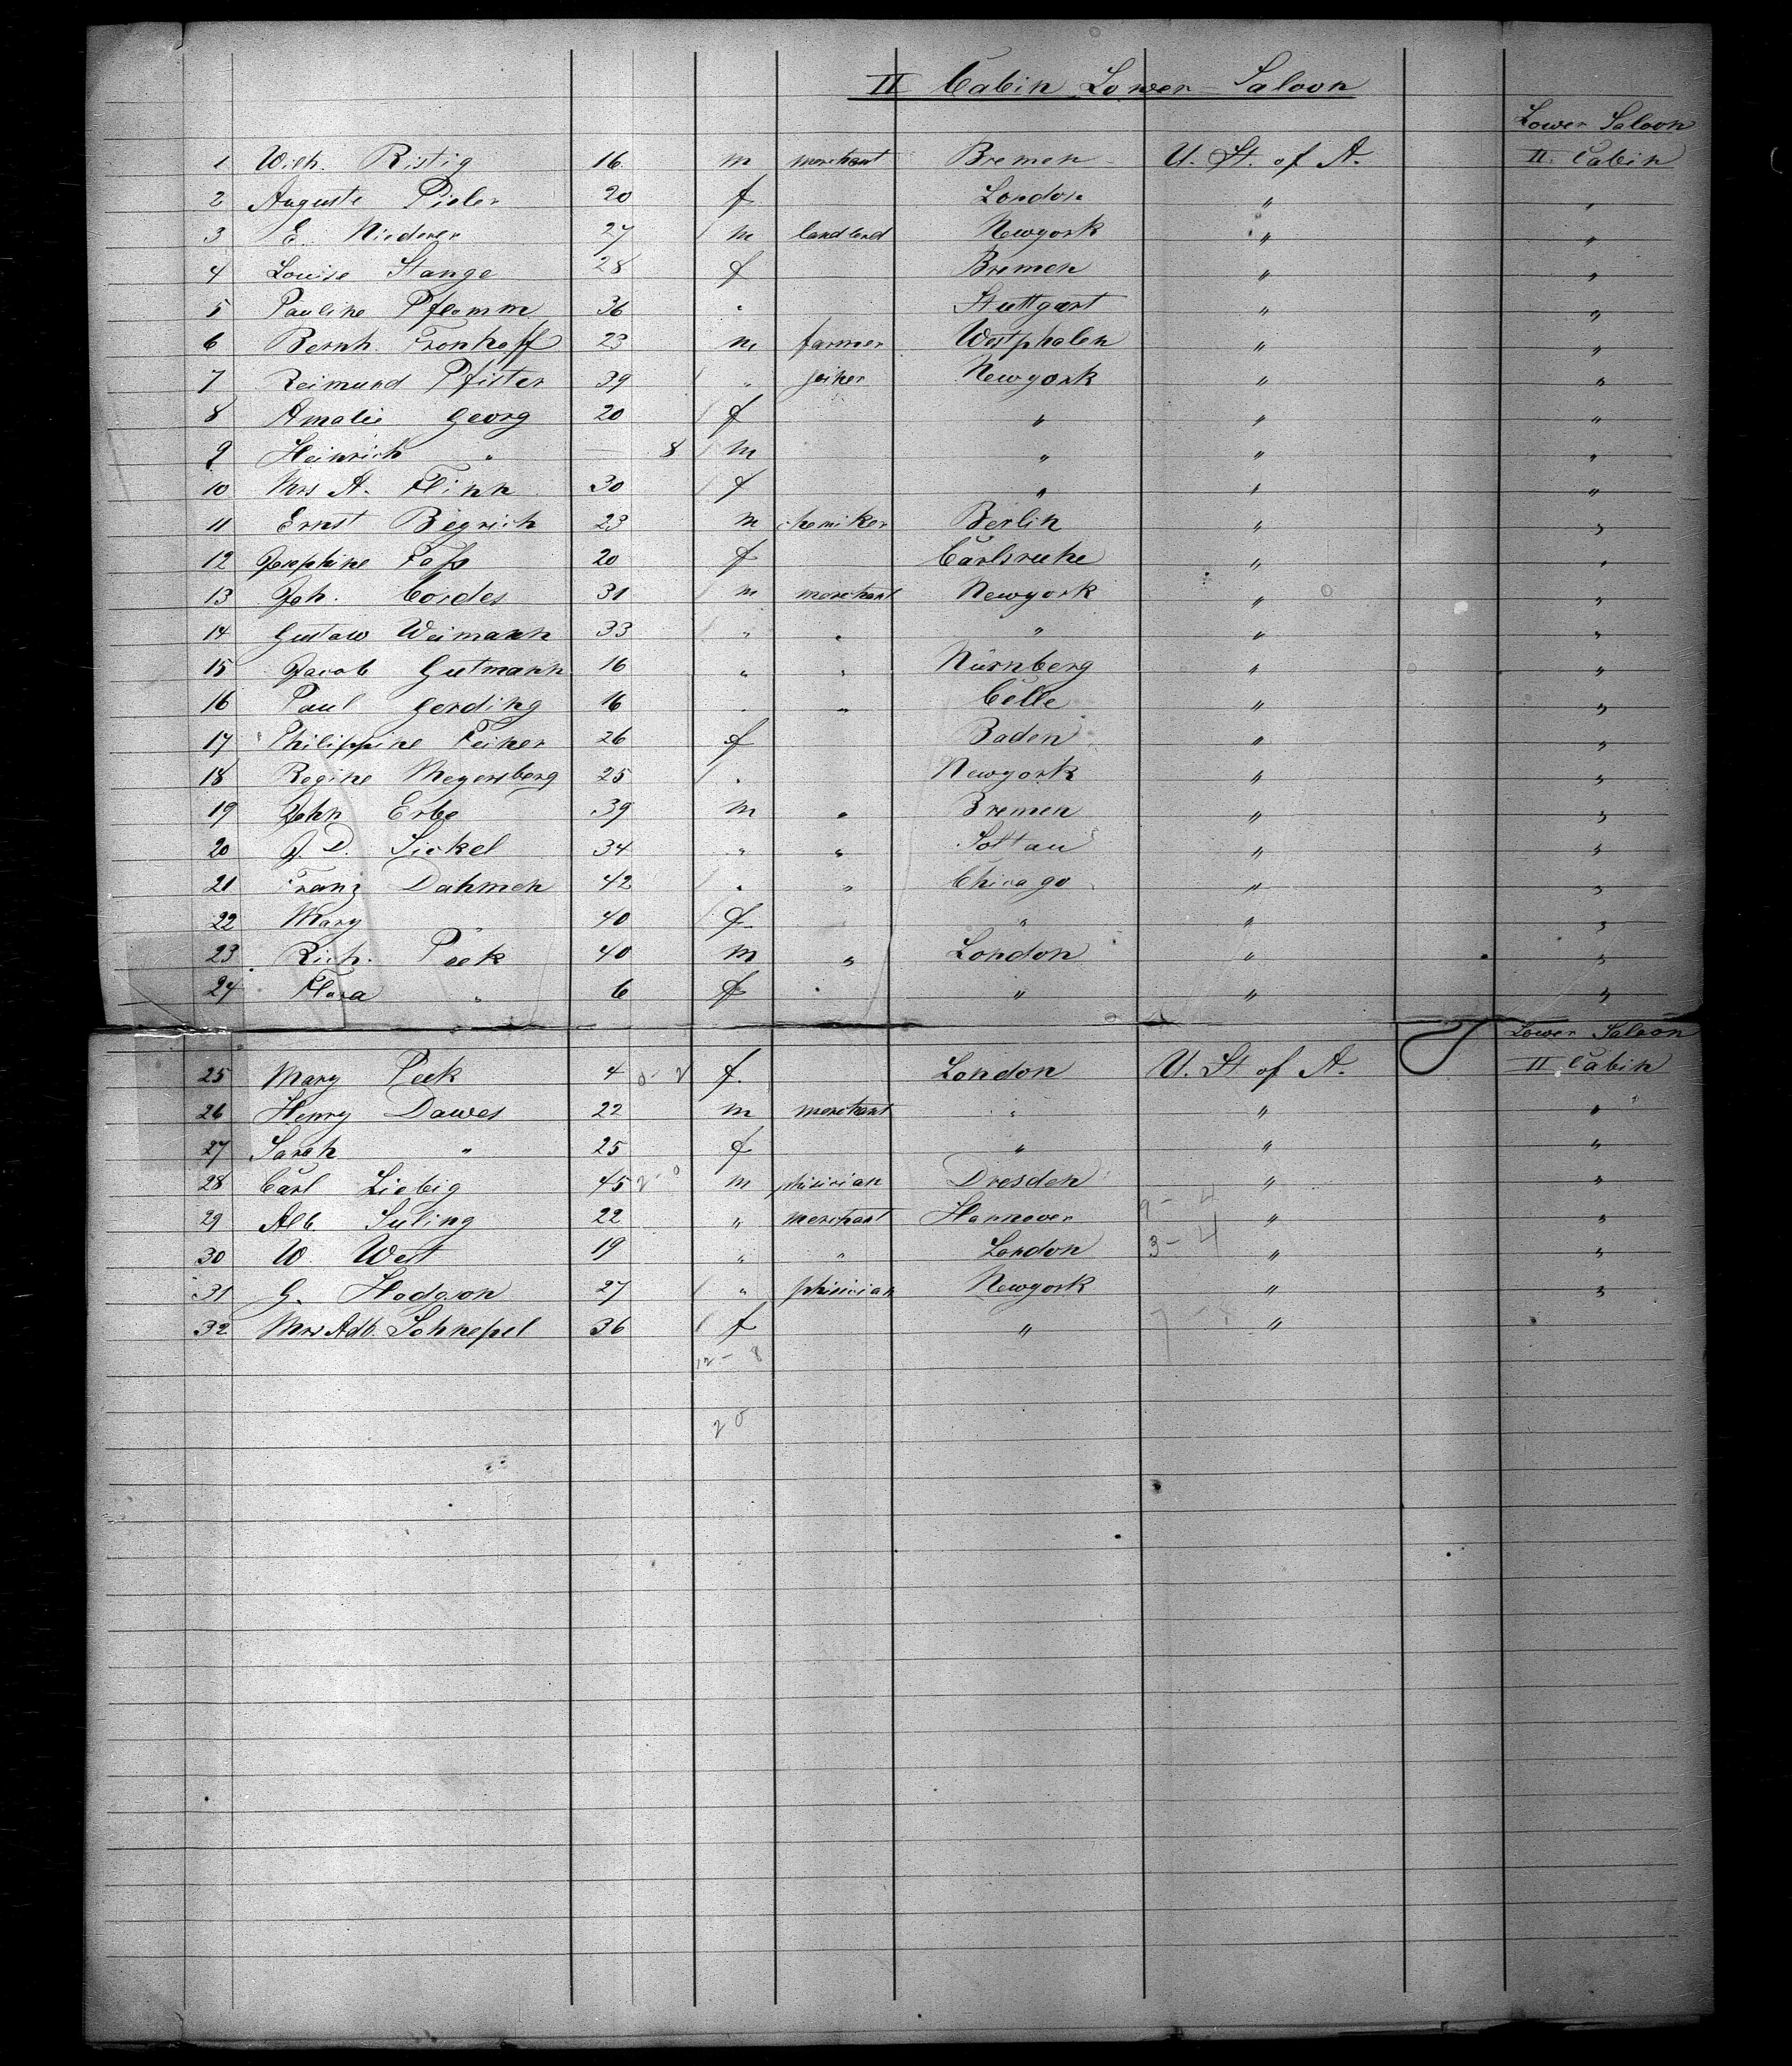 II Cabin Lower Saloon
Lower Saloon
1 Wilh. Ristig 16 m merchant Bremen U. St. of A. II. Cabin
2 Auguste Pieler 20 f London " "
3 E. Niederer 27 m landlord Newyork " "
4 Louise Stange 28 f Bremen " "
5 Pauline Pflomm 36 " Stuttgart " "
6 Bernh. Fronhoff 23 m farmer Westphalen " "
7 Reimund Pfister 39 " joiner Newyork " "
8 Amalie Georg 20 f " " "
9 Heinrich " — 8 m " " "
10 Mrs A. Flinn 30 f " " "
11 Ernst Begrich 23 m chemiker Berlin " "
12 Josephine Fass 20 f Carlsruhe " "
13 Joh. Cordes 31 m merchant Newyork " "
14 Gustaw Weimann 33 " " " " "
15 Jacob Gutmann 16 " " Nürnberg " "
16 Paul Gerding 16 " " Celle " "
17 Philippine Feiner 26 f Baden " "
18 Regine Meyersberg 25 " Newyork " "
19 John Erbe 39 m " Bremen " "
20 J. D. Sickel 34 " " Soltau " "
21 Franz Dahmen 42 " " Chicago " "
22 Mary " 40 f " " "
23 Rich. Peek 40 m " London " "
24 Flora " 6 f " " "
Lower Saloon
25 Mary Peek 4 f. London U. St of A. II Cabin
26 Henry Dawes 22 m merchant " " "
27 Sarah " 25 f " " "
28 Carl Liebig 45 m phisician Dresden " "
29 Alb Suling 22 " merchant Hannover " "
30 W. West 19 " " London 3 - 4 " "
31 G. Hodgson 27 " phisician Newyork " "
32 Mrs Adb. Schnepel 36 f " "
12 - 8
20